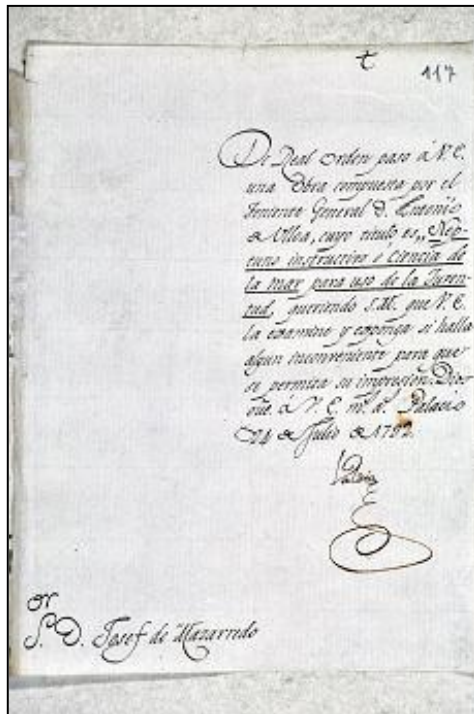 t
117
De Real orden paso à V.E.
una Obra compuesta por el
Teniente General D. Antonio
de Ulloa, cuyo titulo es, „Nep-
tuno instructivo e Ciencia de
la mar para uso de la Juven-
tud, queriendo S.M. que V.E.
la examine y exponga si halla
algun inconveniente para que
se permita su impresion. Dios
gũe. à V.E. m.s a.s Palacio
24 de Julio de 1792.
Valdés
S.or D. Josef de Mazarredo